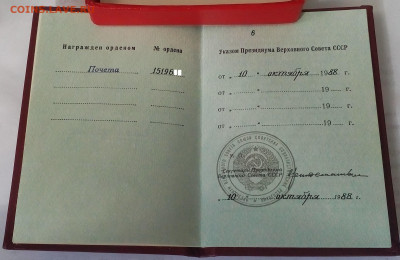 COINS.LAVE.RU
Награжден орденом № ордена
Почета 15196
8
Указом Президиума Верховного Совета СССР
от „ 10 “ октября 1988 г.
от „ “ 19 г.
от „ “ 19 г.
от „ “ 19 г.
Секретарь Президиума
Верховного Совета СССР
„ 10 “ октября 1988 г.